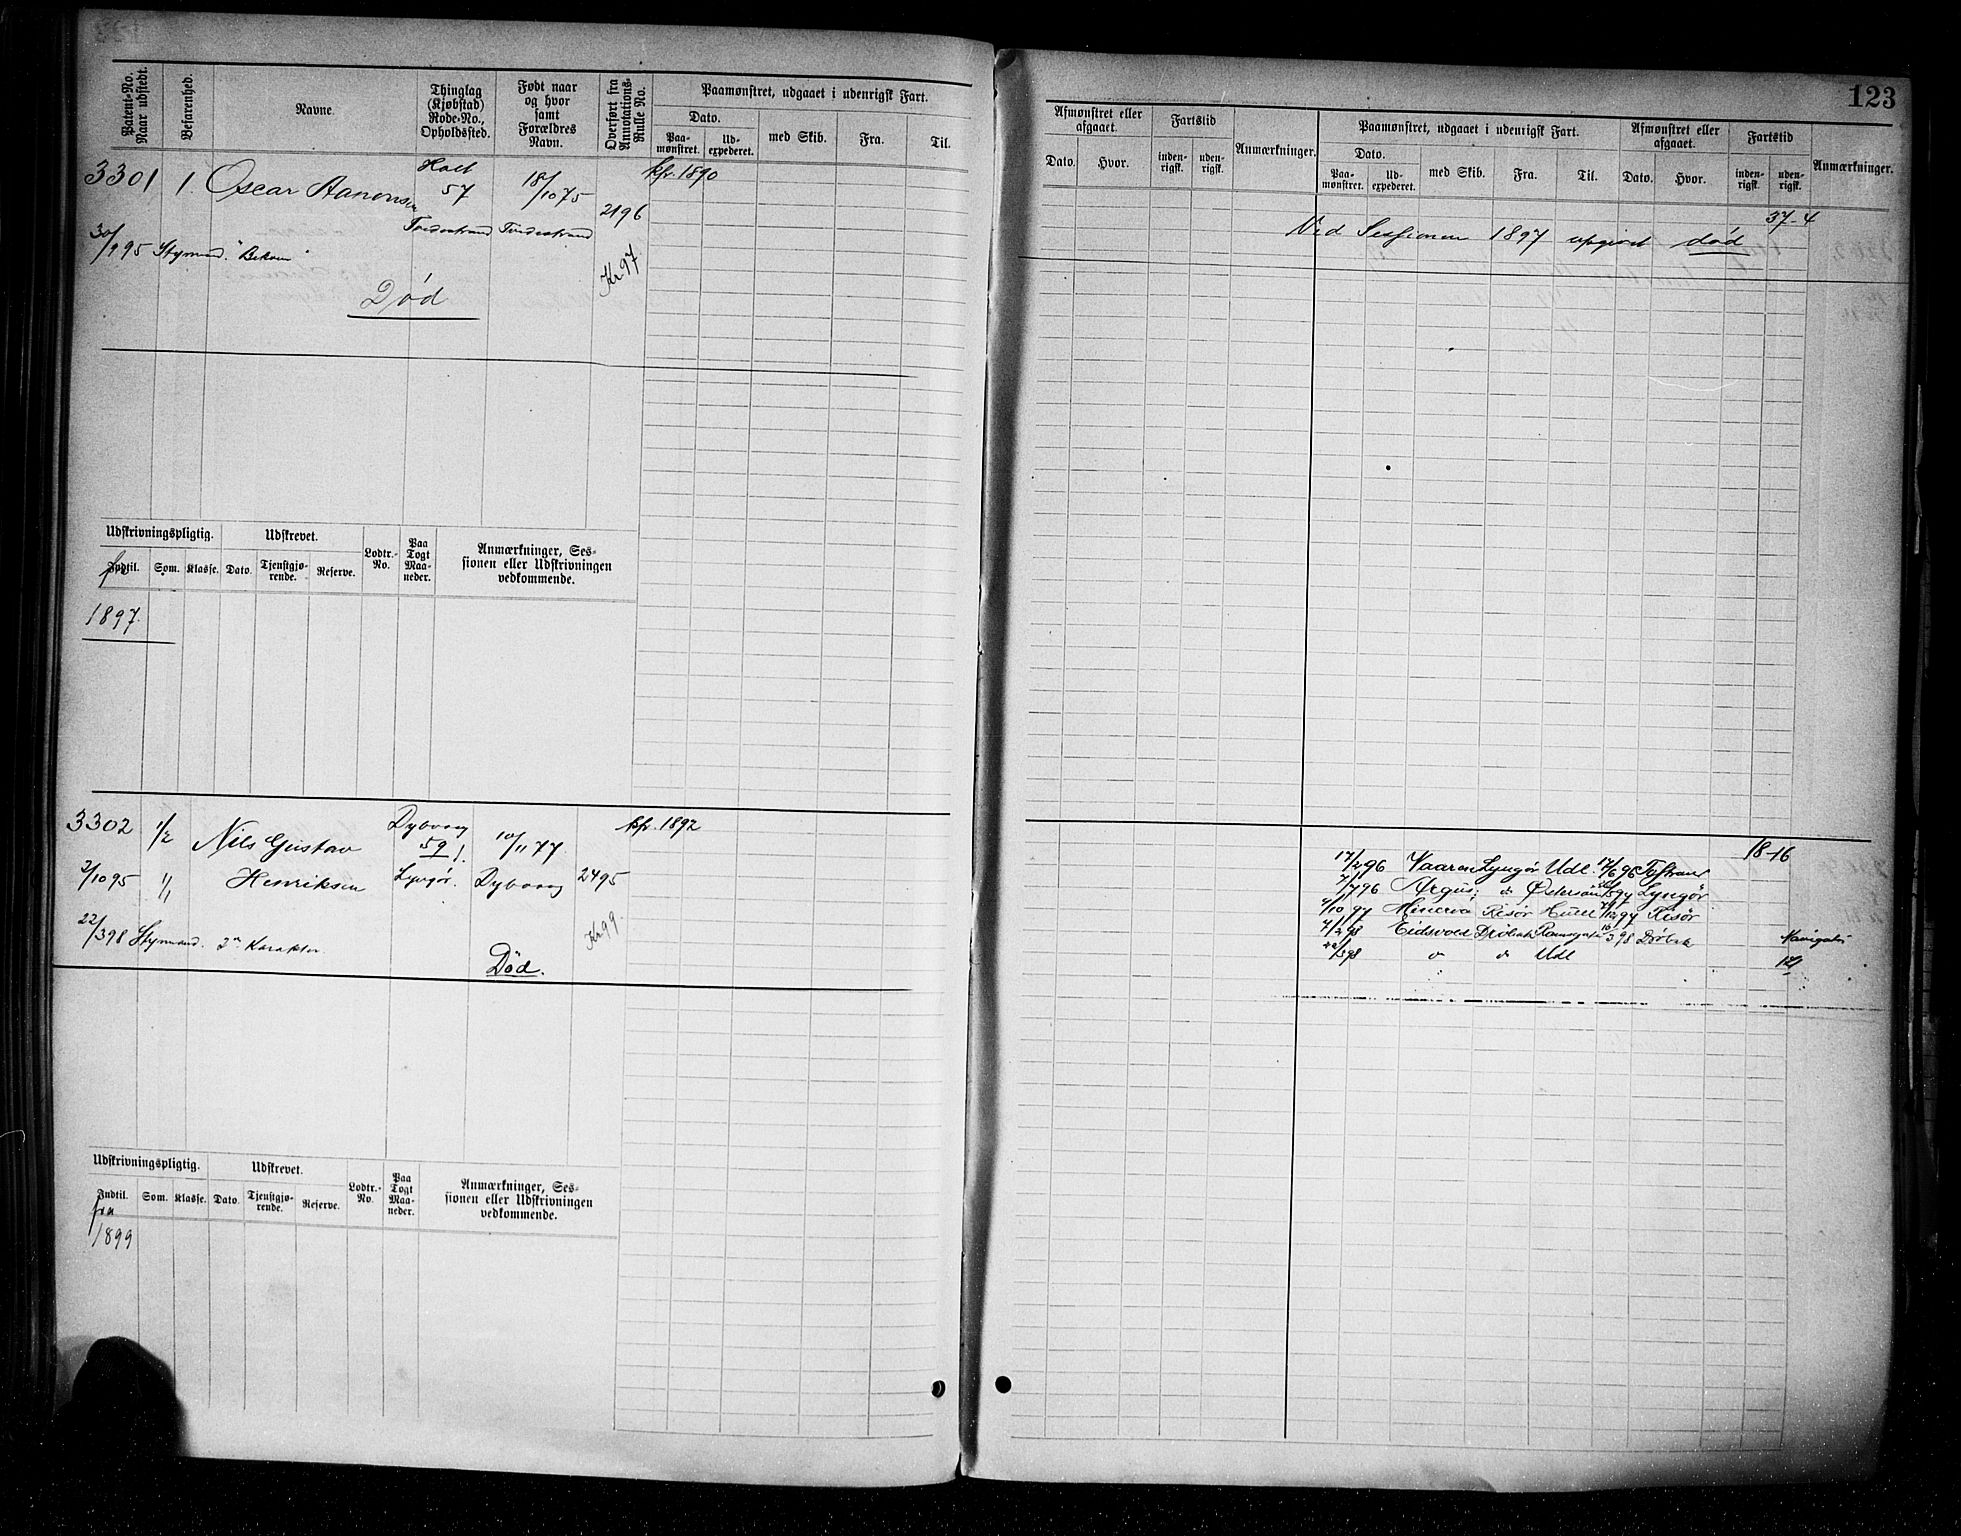 123
Patent-No. Naar udstedt.
Befarenhed.
Navne.
Thinglag (Kjøbstad) Rode-No., Opholdssted.
Født naar og hvor samt Forældres Navn.
Overført fra Annotations-Rulle No.
Paamønstret, udgaaet i udenrigsk Fart.
Dato.
Paa-mønstret.
Ud-expederet.
med Skib.
Fra.
Til.
3301 1. Oscar Aanonsen Holt 57 18/10 75 2196 kfr. 1890
30/9 95 Styrmand. Tvedestrand Tvedestrand
Kr 97
Død
Udskrivningspligtig.
Udskrevet.
Lodtr.-No.
Paa Togt Maa-neder.
Anmærkninger, Ses-sionen eller Udskrivningen vedkommende.
Indtil. Som. Klasse. Dato. Tjenstgjø-rende. Reserve.
fra
1897.
3302 1/2 Nils Gustav Dybvaag 59 1. 10/11 77. kfr. 1892
2/10 95 1/1 Henriksen Lyngør. Dybvaag 2495
22/3 98 Styrmand. 2den Karakter. Kr 99.
Død.
Udskrivningspligtig.
Udskrevet.
Lodtr.-No.
Paa Togt Maa-neder.
Anmærkninger, Ses-sionen eller Udskrivningen vedkommende.
Indtil. Som. Klasse. Dato. Tjenstgjø-rende. Reserve.
fra
1899
Afmønstret eller afgaaet.
Fartstid
Anmærkninger.
Dato. Hvor. inden-rigsk. uden-rigsk.
Paamønstret, udgaaet i udenrigsk Fart.
Dato.
Paa-mønstret. Ud-expederet. med Skib. Fra. Til.
Afmønstret eller afgaaet.
Dato. Hvor.
Fartstid
inden-rigsk. uden-rigsk.
Anmærkninger.
37-4
Ved Sessionen 1897 opgivet død
18-16
17/2 96 Vaaren Lyngør Udl. 17/6 96
7/7 96 Argus Lyngør
2/10 97 Minerva Risør Hull Risør
Eidsvold Drøbak Ramsgate 16/3 98 Drøbak
22/3 98 " " Udl